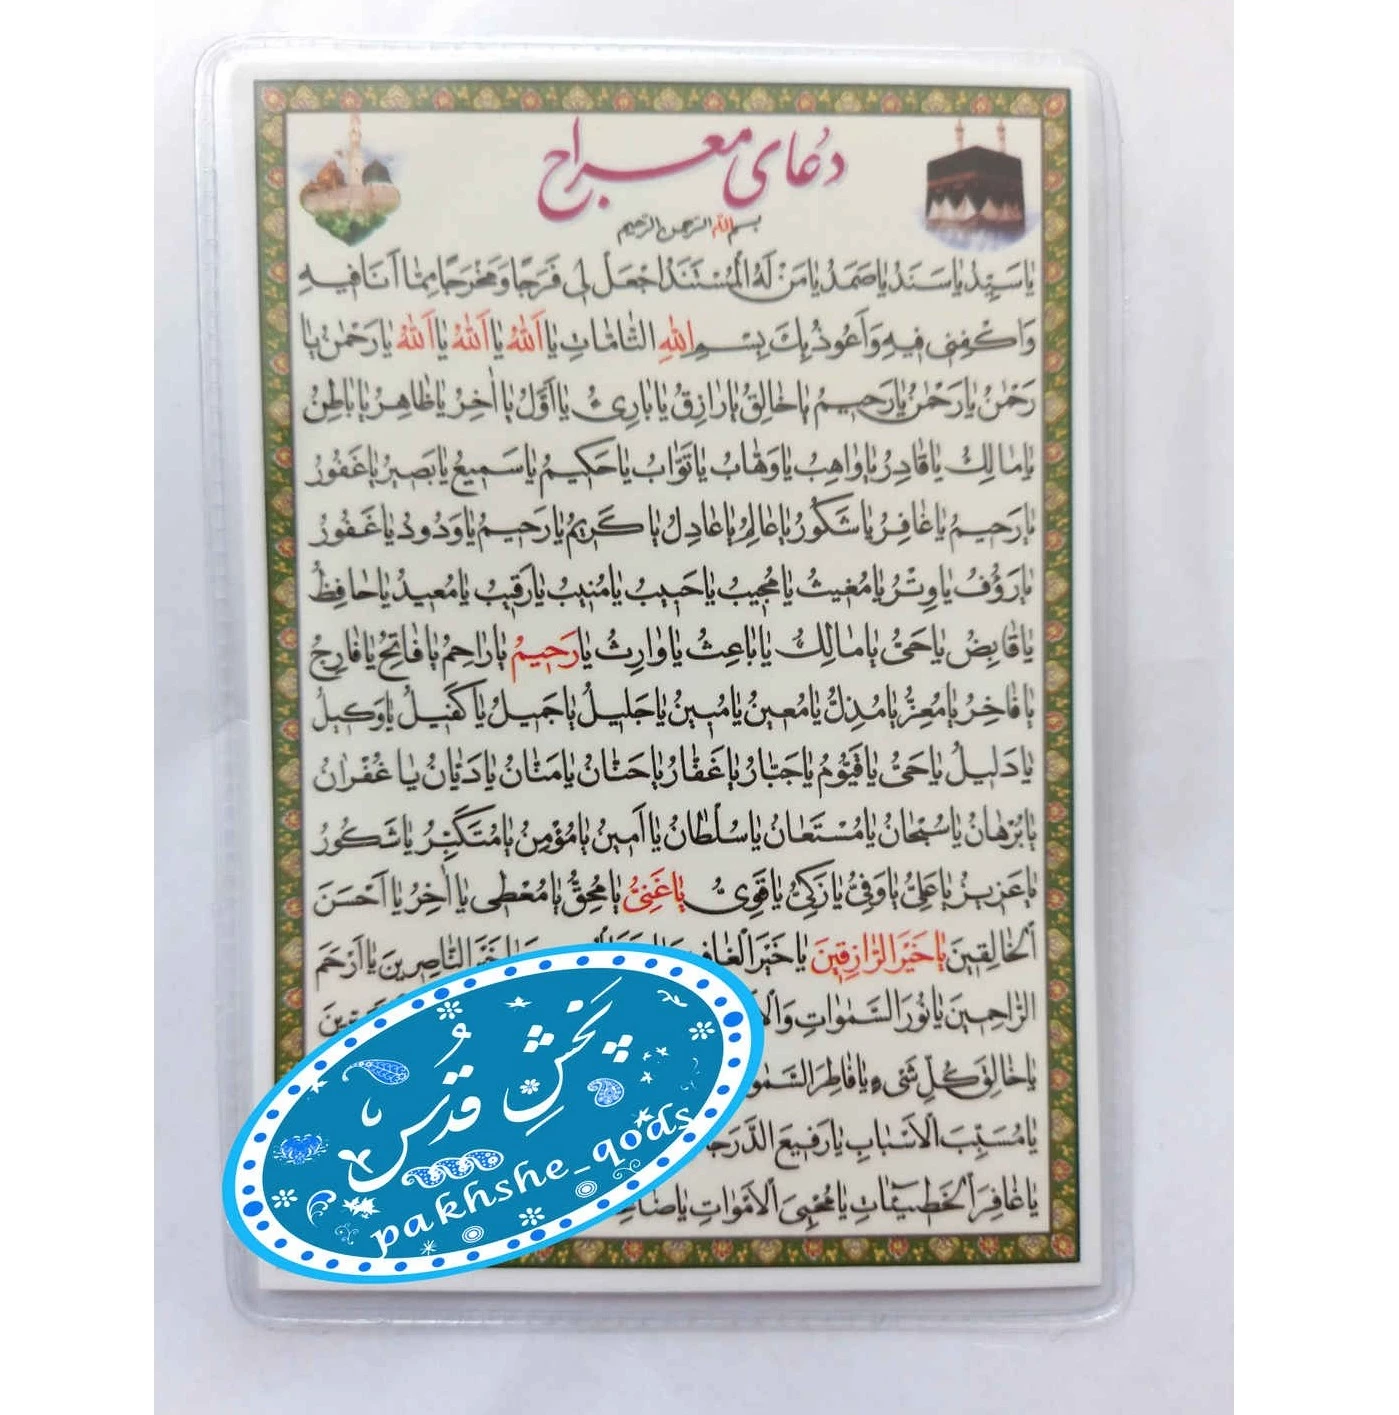 دُعای معراج
بسم الله الرحمن الرحیم
یٰا سَیِّدُ یٰا سَنَدُ یٰا صَمَدُ یٰا مَنْ لَهُ الْمُسْتَنَدُ اجْعَلْ لی فَرَجًا وَ مَخْرَجًا مِمّٰا اَنَا فیهِ
وَاکْفِنی فیهِ وَ اَعُوذُ بِکَ بِسْمِ اللهِ التّٰامّٰاتِ یٰا اَللهُ یٰا اَللهُ یٰا اَللهُ یٰا رَحْمٰنُ یٰا
رَحْمٰنُ یٰا رَحْمٰنُ یٰا رَحیمُ یٰا خٰالِقُ یٰا رٰازِقُ یٰا بٰارِئُ یٰا اَوَّلُ یٰا اٰخِرُ یٰا ظٰاهِرُ یٰا بٰاطِنُ
یٰا مٰالِکُ یٰا قٰادِرُ یٰا وٰاهِبُ یٰا وَهّٰابُ یٰا تَوّٰابُ یٰا حَکیمُ یٰا سَمیعُ یٰا بَصیرُ یٰا غَفُورُ
یٰا رَحیمُ یٰا غٰافِرُ یٰا شَکُورُ یٰا عٰالِمُ یٰا عٰادِلُ یٰا کَریمُ یٰا رَحیمُ یٰا وَدُودُ یٰا غَفُورُ
یٰا رَؤُفُ یٰا وِتْرُ یٰا مُغیثُ یٰا مُجیبُ یٰا حَبیبُ یٰا مُنیبُ یٰا رَقیبُ یٰا مُعیدُ یٰا حٰافِظُ
یٰا قٰابِضُ یٰا حَیُّ یٰا مٰالِکُ یٰا بٰاعِثُ یٰا وٰارِثُ یٰا رَحیمُ یٰا رٰاحِمُ یٰا فٰاتِحُ یٰا فٰارِجُ
یٰا فٰاخِرُ یٰا مُعِزُّ یٰا مُذِلُّ یٰا مُعینُ یٰا مُبینُ یٰا جَلیلُ یٰا جَمیلُ یٰا کَفیلُ یٰا وَکیلُ
یٰا دَلیلُ یٰا حَیُّ یٰا قَیُّومُ یٰا جَبّٰارُ یٰا غَفّٰارُ یٰا حَنّٰانُ یٰا مَنّٰانُ یٰا دَیّٰانُ یٰا غُفْرٰانُ
یٰا بُرْهٰانُ یٰا سُبْحٰانُ یٰا مُسْتَعٰانُ یٰا سُلْطٰانُ یٰا اَمینُ یٰا مُؤْمِنُ یٰا مُتَکَبِّرُ یٰا شَکُورُ
یٰا عَزیزُ یٰا عَلِیُّ یٰا وَفِیُّ یٰا زَکِیُّ یٰا قَوِیُّ یٰا غَنِیُّ یٰا مُحِقُّ یٰا مُعْطی یٰا اٰخِرُ یٰا اَحْسَنَ
الْخٰالِقینَ یٰا خَیْرَ الرّٰازِقینَ یٰا خَیْرَ الْغٰافِرینَ خَیْرَ النّٰاصِرینَ یٰا اَرْحَمَ
الرّٰاحِمینَ یٰا نُورَ السَّمٰوٰاتِ
یٰا خٰالِقَ کُلِّ شَیْءٍ یٰا فٰاطِرَ
یٰا مُسَبِّبَ الْاَسْبٰابِ یٰا رَفیعَ
یٰا غٰافِرَ الْخَطیئٰاتِ یٰا مُحْیِیَ الْاَمْوٰاتِ
پَخشِ قُدس
pakhshe_qods